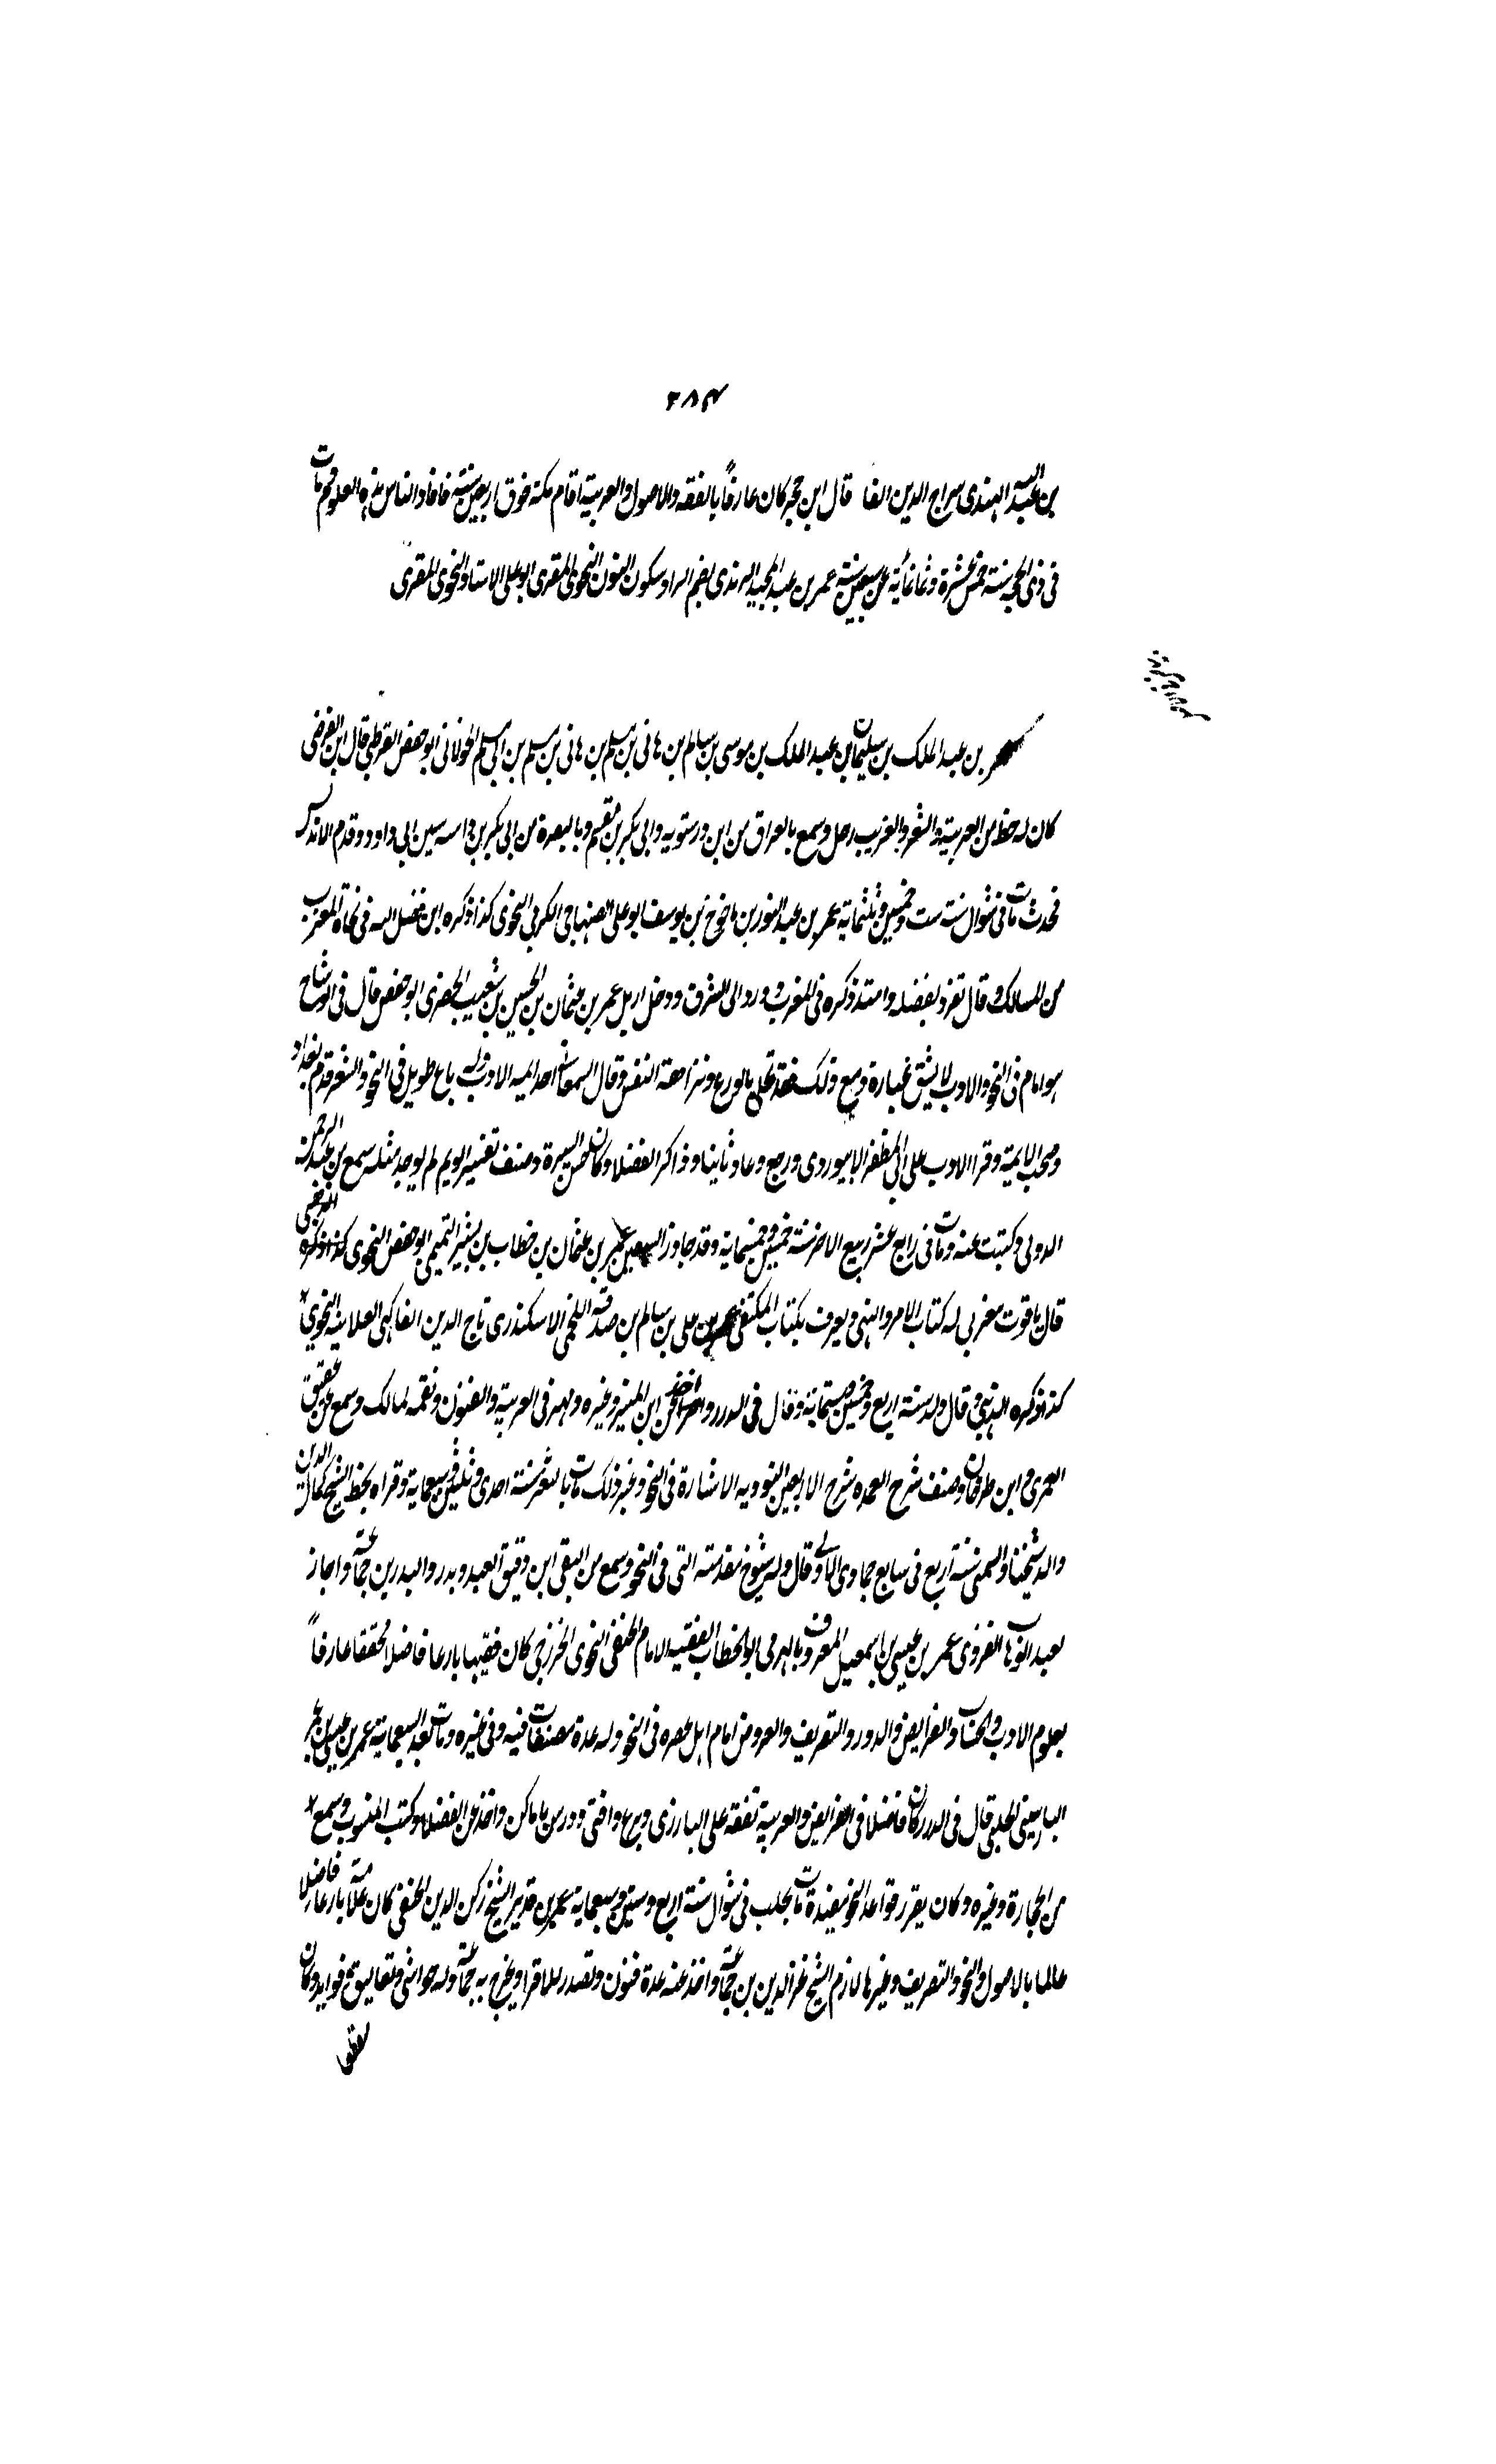 ٢٨٤
بن عبد الله الهندى سراج الدين الفا قال ابن حجر كان عارفاً بالفقه والاصول والعربية اقام بمكة فوق اربعين سنة فافاد الناس بهذه العلوم مات
فى ذى الحجة سنة خمس عشرة وثمانمائة عن سبعين سنة عمر بن عبد المجيد الرندى بضم الراء وسكون النون النحوى المقرى ابو على الاستاد النحوى المقرى
عمر بن عبد الملك بن سليمان بن عبد الملك بن موسى بن سالم بن هانى بن مسلم بن هانى بن مسلم بن ابى مسلم الخولانى ابو حفص القرطبى قال ابن الفرضى
كان له حظ من العربية والشعر والغريب رحل وسمع بالعراق من ابن درستويه وابى بكر بن مقسم وبالبصرة من ابى بكر بن داسه سنن ابى داود وقدم الاندلس
فحدث مات فى شوال سنة ست وخمسين وثلثماية عمر بن عبد النور بن ماخوخ بن يوسف ابو على الصنهاجى الكرفى النحوى كذا ذكره ابن فضل الله فى نحاة المغرب
من المسالك وقال تفرد بفضله وامتد ذكره فى المغرب وورد الى المشرق ودخل اربل عمر بن عثمان بن الحسين بن شعيب الجنزى ابو حفص قال فى الوشاح
هو امام فى النحو والادب لا يشق غباره ومع ذلك فقد تحلى بالورع ونزاهة النفس وقال السمعانى احد ايمه الادب وله باع طويل فى النحو والشعر قدم بغداد
وصحب الايمة وقرا الادب على ابى المظفر الابيوردى ورجع وعاد ثانيا وذاكر الفضلا وكان حسن السيرة وصنف تفسيرا لويتم لم يوجد مثله سمع من عبد الرحمن
الدونى وكتبت عنه ومات فى رابع عشر ربيع الاخر سنة خمسين وخمسماية وقد جاوز السبعين عمر بن عثمان بن خطاب بن بشير التميمى ابو حفص النحوى كذا ذكره
قال ياقوت مغربى له كتاب الامر والنهى ويعرف بكتاب المكتفى عمر بن على بن سالم بن صدقه اللخمى الاسكندرى تاج الدين الفاكهى العلامة النحوى
كذا ذكره الذهبى وقال ولد سنة اربع وخمسين وستماية وقال فى الدرر واخذ عن ابن المنير وغيره ومهر فى العربية والفنون وتفقه لمالك وسمع من عتيق
العمرى وابن طرخان وصنف شرح العمده شرح الاربعين النوويه الاشارة فى النحو وغير ذلك مات بالثغر سنة احدى وثلثين وسبعماية وقراه بخط الشيخ كمال الدين
والد شيخنا الشمنى سنة اربع فى سابع جمادى الاولى وقال وله شيوخ مقدمته التى فى النحو وسمع من التقى ابن دقيق العيد وبدر والبدر بن جماعة واجاز
لعبد الوهاب القروى عمر بن عيسى بن اسمعيل المعروف بالهرمى ابو الخطاب الفقيه الامام الحنفى النحوى الخزرجى كان فقيها بارعا فاضلا محققا عارفاً
بعلوم الادب والحساب والفرايض والدور والتصريف والعروض امام اهل عصره فى النحو وله عدة مصنفات فيه وفى غيره ومات بعد السبعماية عمر بن عيسى بن عمر
البارينى الحلبى قال فى الدرر كان فاضلا فى الفرايض والعربية تفقه على البارزى وبرع وافتى ودرس باماكن واخذ عن الفضلا وكتب المنسوب وسمع
من الحجار وغيره وكان يقرر قواعد النحو مفيدة مات بحلب فى شوال سنة اربع وستين وسبعماية عمر بن قديد الشيخ ركن الدين الحنفى كان علامة بارعا فاضلا
عالما بالاصول والنحو والتصريف وغيرها لازم الشيخ عز الدين بن جماعة واخذ عنه عدة فنون وتصدر للاقرا وتخرج به جماعة وله حواشى وتعاليق وفوايد وكان